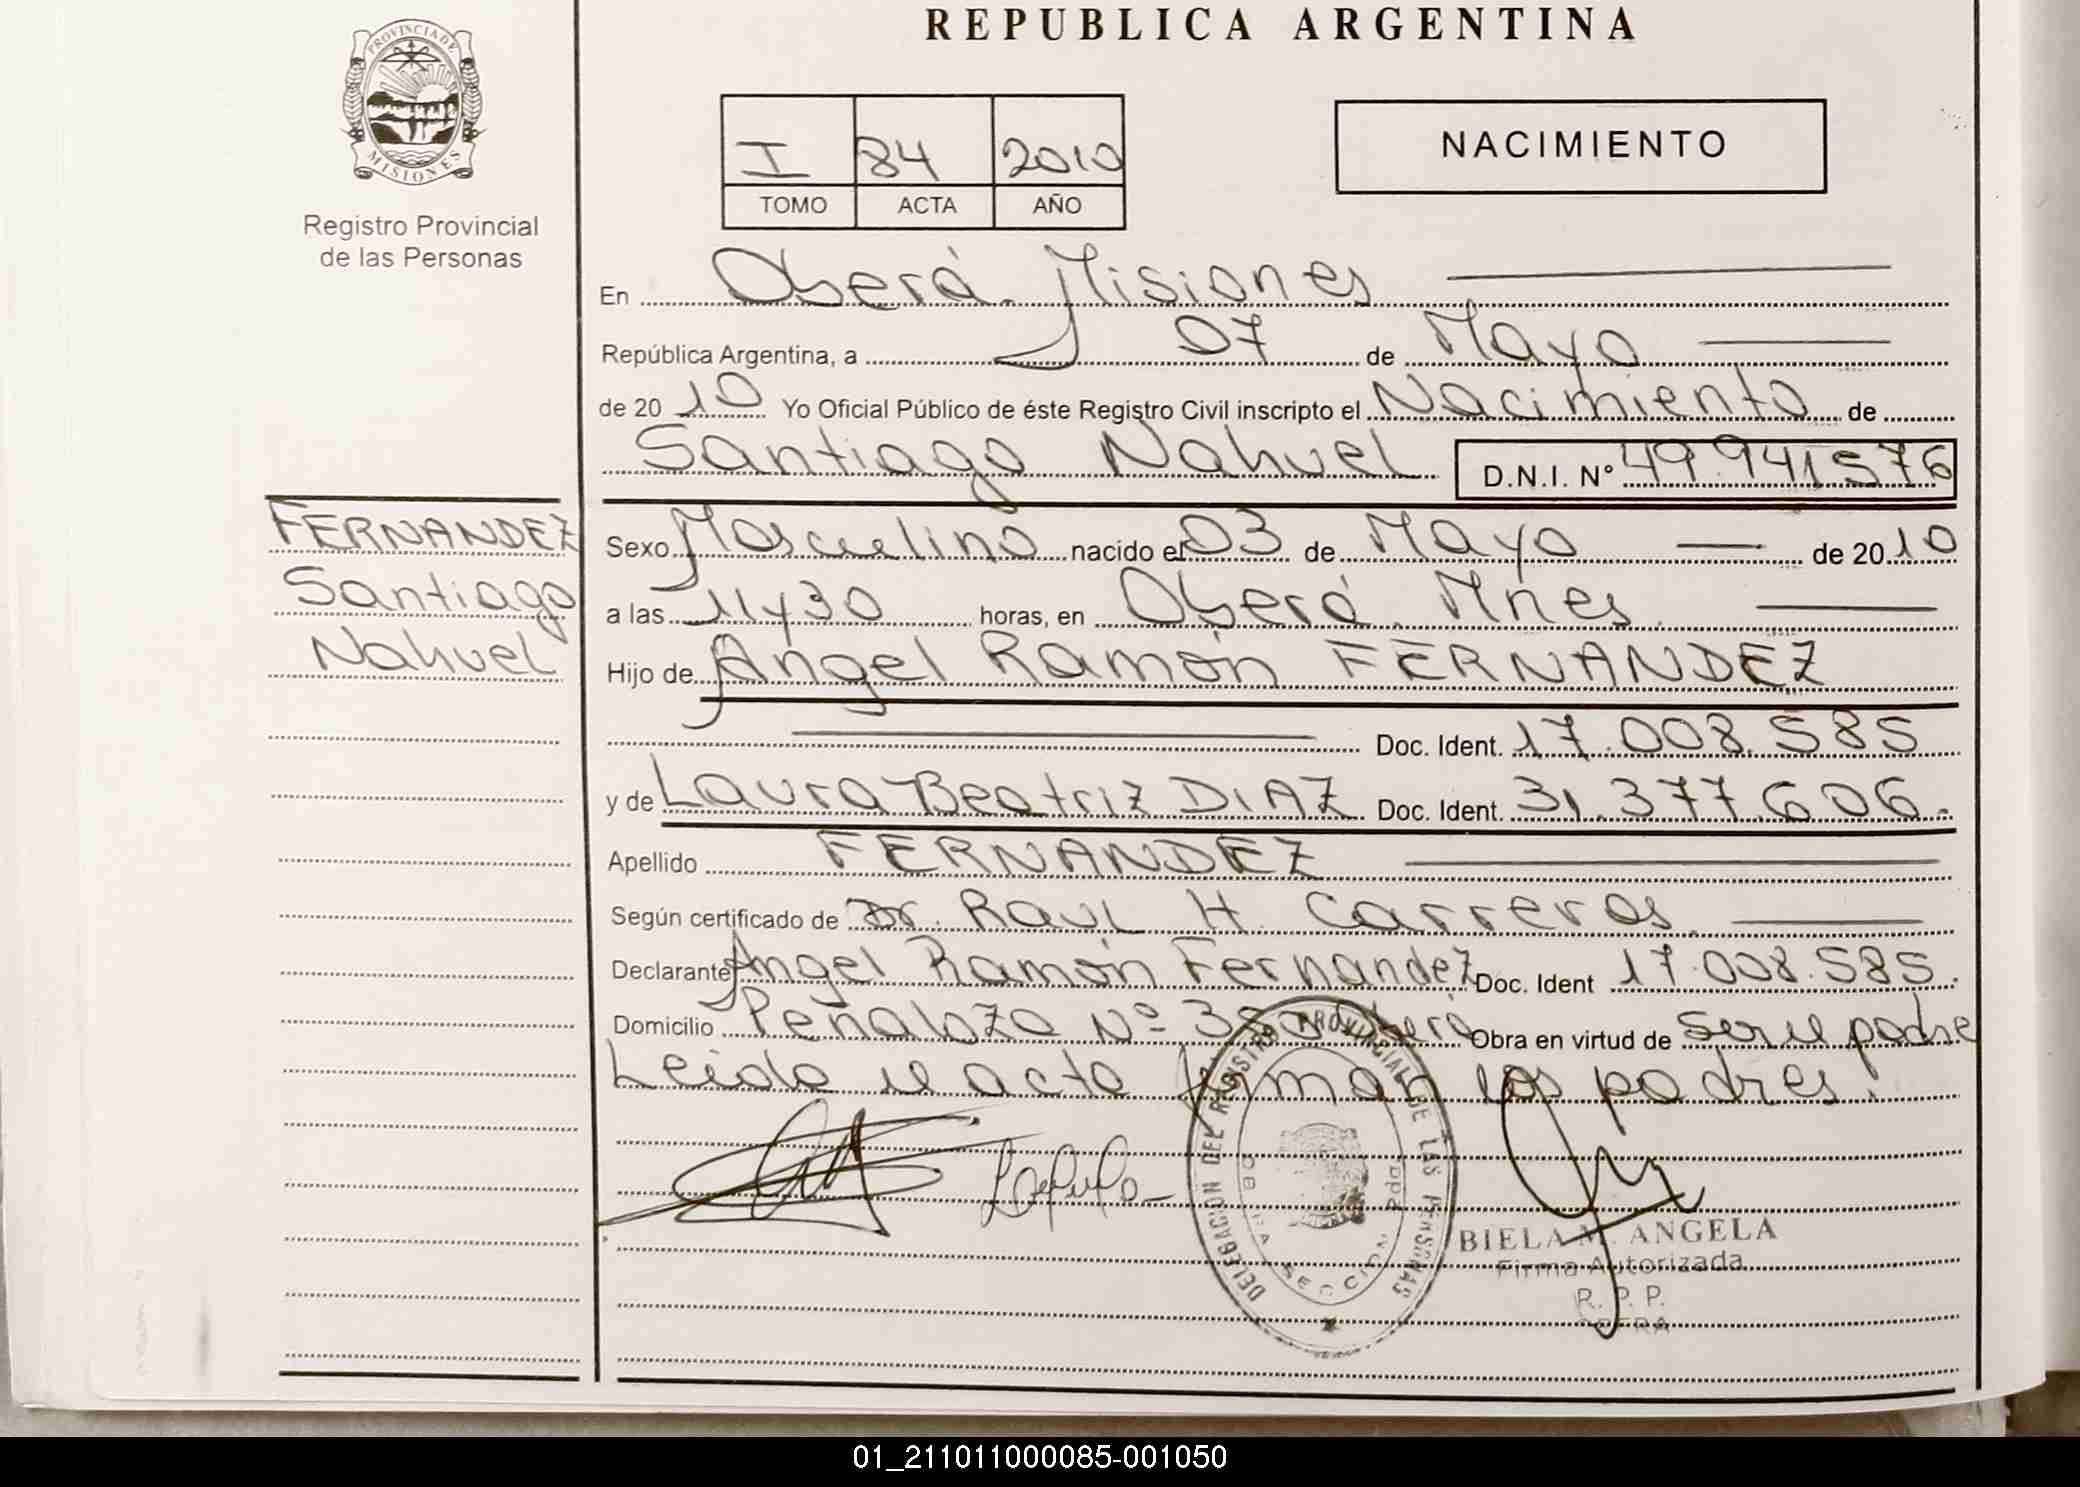 REPUBLICA ARGENTINA
PROVINCIA DE
MISIONES
Registro Provincial
de las Personas
I 84 2010
TOMO ACTA AÑO
NACIMIENTO
En Oberá. Misiones
República Argentina, a 07 de Mayo
de 2010 Yo Oficial Público de éste Registro Civil inscripto el Nacimiento de
Santiago Nahuel D.N.I. N° 49.941576
FERNANDEZ
Santiago
Nahuel
Sexo Masculino nacido el 03 de Mayo de 2010
a las 11 y 30 horas, en Oberá. Mnes.
Hijo de Angel Ramón FERNANDEZ
Doc. Ident. 17.008.585
y de Laura Beatriz DIAZ Doc. Ident. 31.377.606.
Apellido FERNANDEZ
Según certificado de Dr. Raul H. Carreros.
Declarante Angel Ramón Fernandez Doc. Ident 17.008.585.
Domicilio Peñaloza Nº Oberá Obra en virtud de ser el padre
Leida el acta firman los padres.
DELEGACION DEL REGISTRO PROVINCIAL DE LAS PERSONAS
SECCION
BIELA M. ANGELA
Firma Autorizada
R. P. P.
OBERA
01_211011000085-001050